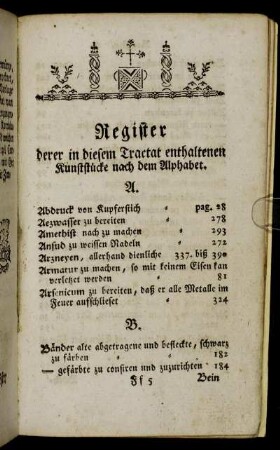 Register
derer in diesem Tractat enthaltenen
Kunststücke nach dem Alphabet.
A.
Abdruck von Kupferstich " pag. 28
Aezwasser zu bereiten " 278
Amethist nach zu machen " 293
Ansud zu weissen Nadeln " 272
Arzneyen, allerhand dienliche 337. biß 390
Armatur zu machen, so mit keinem Eisen kan
verletzet werden " " 81
Arsenicum zu bereiten, daß er alle Metalle im
Feuer aufschliesset " " 324
B.
Bänder alte abgetragene und befleckte, schwarz
zu färben " " " 182
— gefärbte zu und zuzurichten " 184
Ff 5 Bein